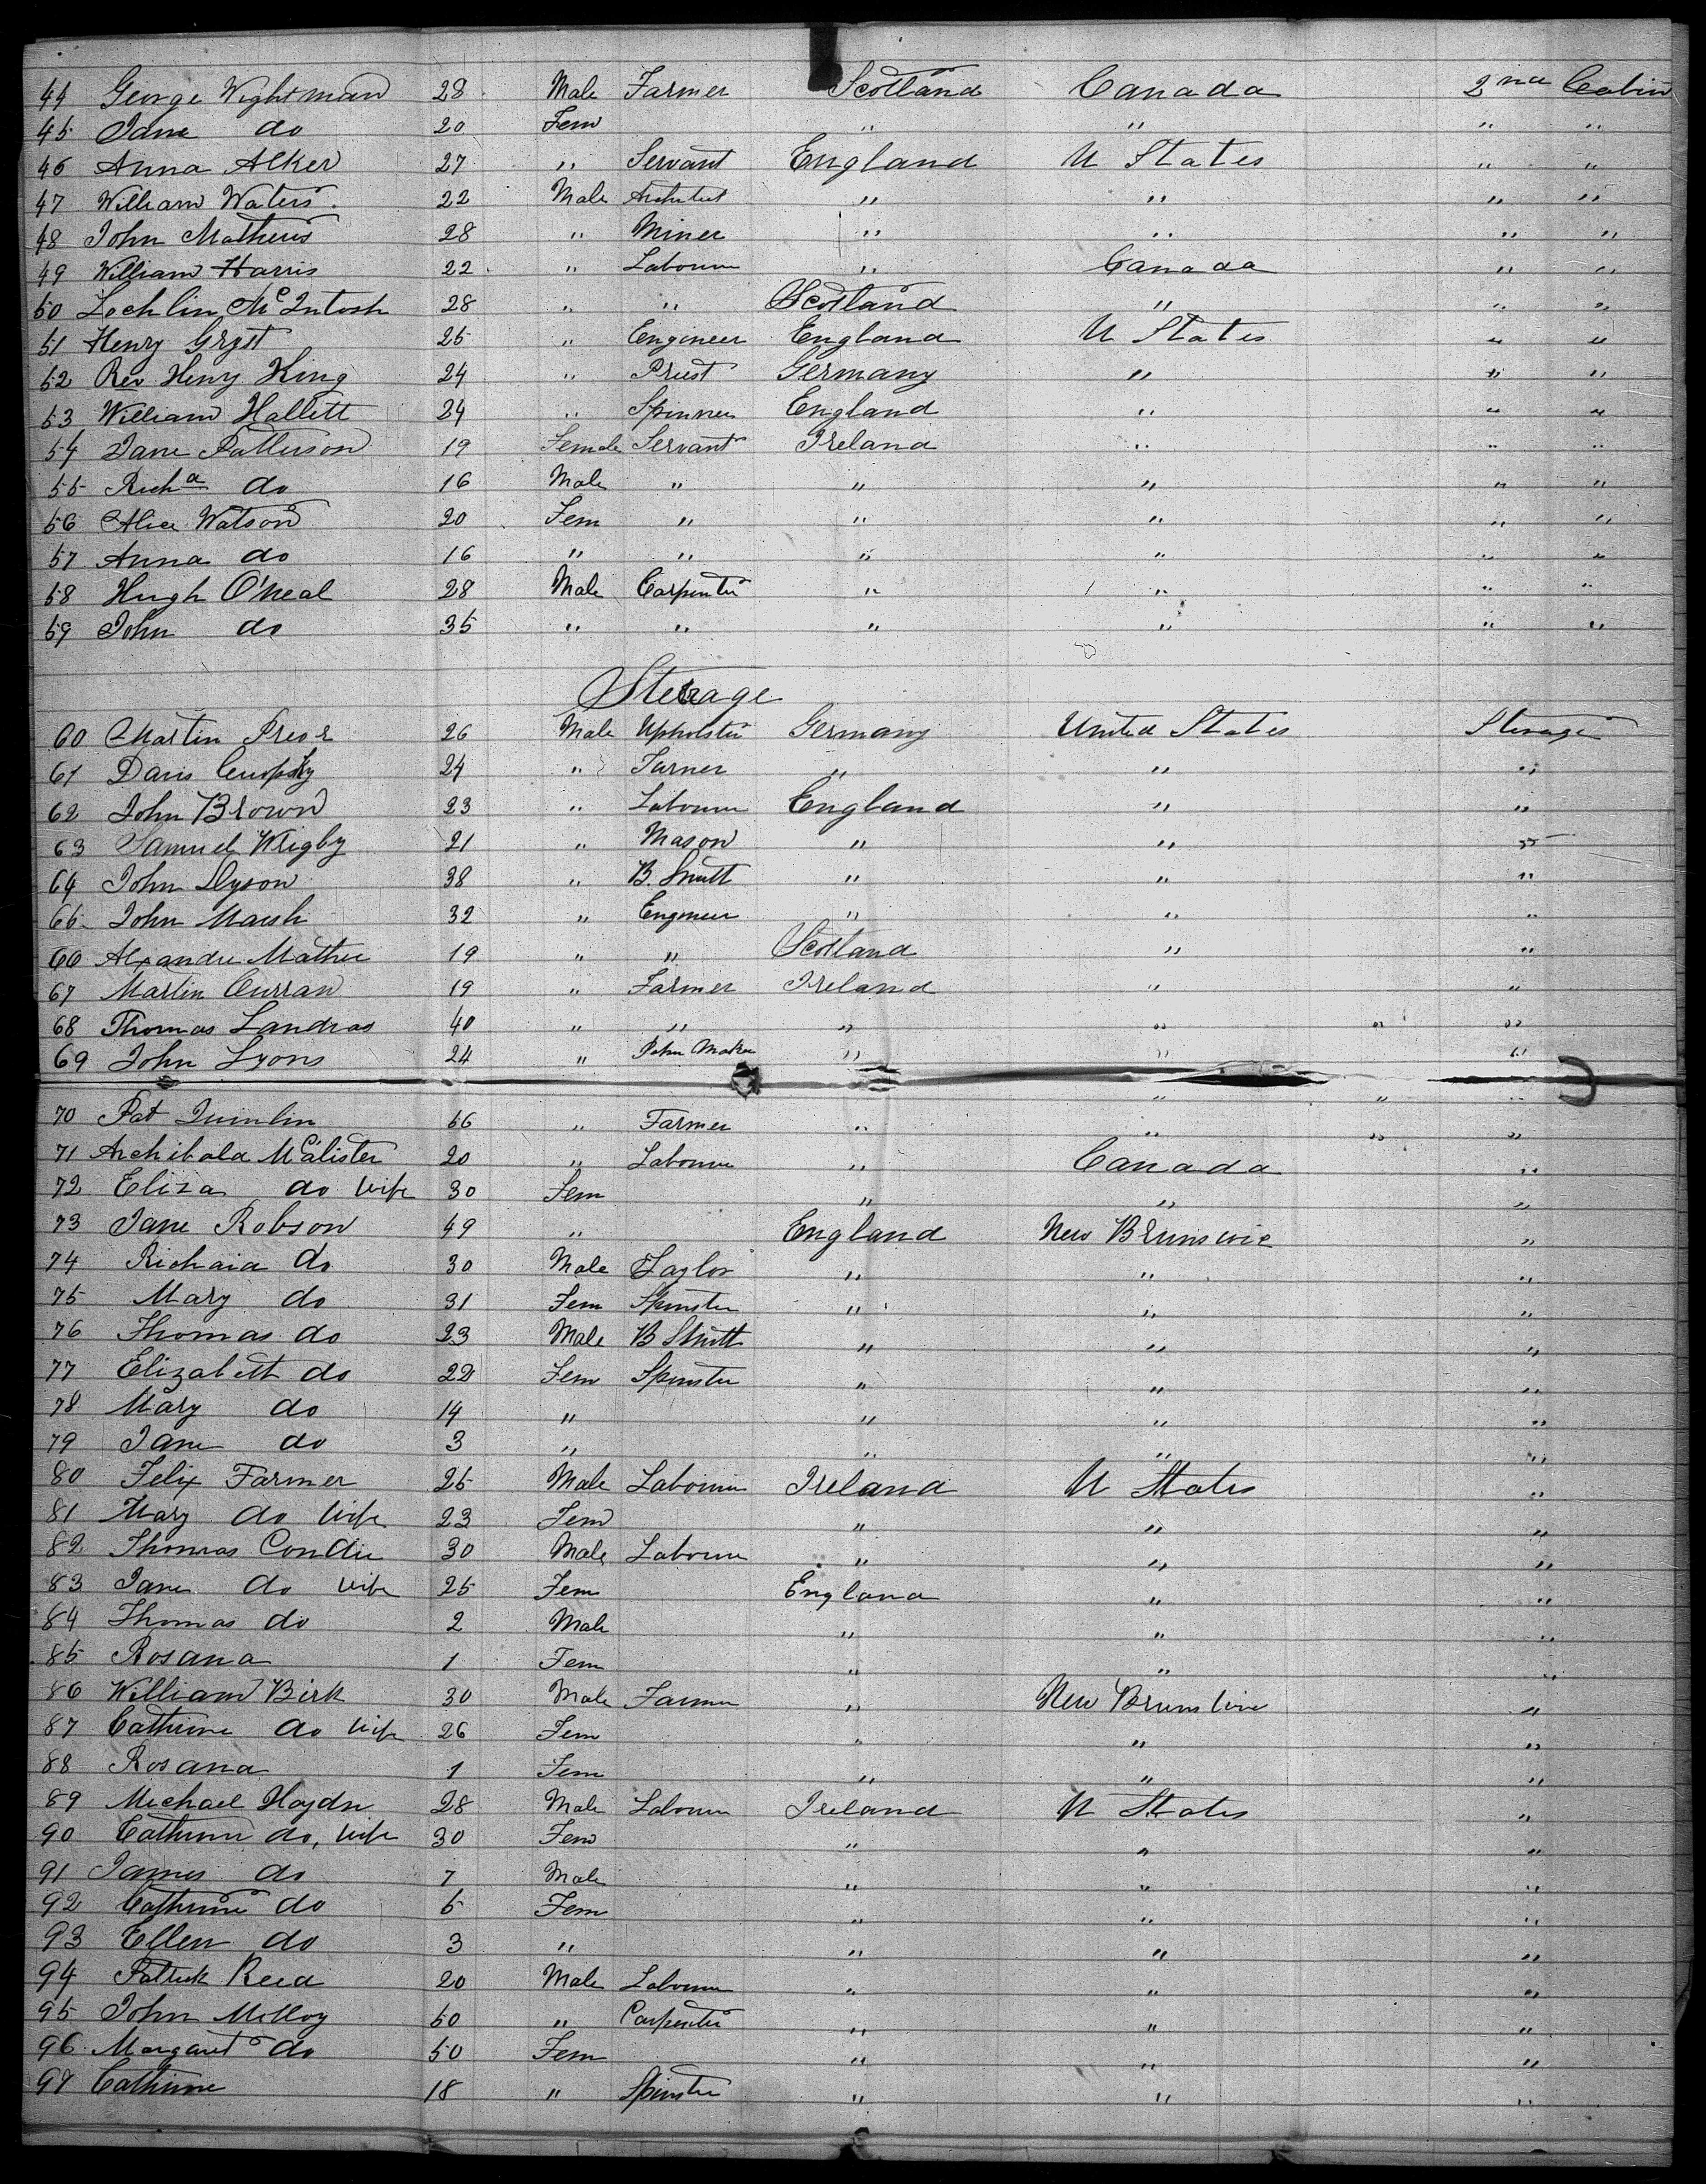 44 George Wightman 28 Male Farmer Scotland Canada 2nd Cabin
45 Jane do 20 Fem " " " "
46 Anna Alker 27 " Servant England U States " "
47 William Waters 22 Male Architect " " " "
48 John Mathews 28 " Miner " " " "
49 William Harris 22 " Labourer " Canada " "
50 Lochlin McIntosh 28 " " Scotland " " "
51 Henry 25 " Engineer England U States " "
52 Rev Henry King 24 " Priest Germany " " "
53 William Hallett 24 " Spinner England " " "
54 Jane Patterson 19 Female Servant Ireland " " "
55 Richd do 16 Male " " " " "
56 Alice Watson 20 Fem " " " " "
57 Anna do 16 " " " " " "
58 Hugh O'Neal 28 Male Carpenter " " " "
59 John do 35 " " " " " "
Sterage
60 Martin 26 Male Upholster Germany United States Sterage
61 24 " Turner " " "
62 John Brown 23 " Labourer England " "
63 Samuel Wrigby 21 " Mason " " "
64 John Dyson 38 " B. Smith " " "
65 John Marsh 32 " Engineer " " "
66 Alexander Mather 19 " " Scotland " "
67 Martin Curran 19 " Farmer Ireland " "
68 Thomas Landras 40 " " " " " "
69 John Lyons 24 " Maker " " "
" " "
70 Pat Quinlin 56 " Farmer " " " "
71 Archibald McAlister 20 " Labourer " Canada "
72 Eliza do wife 30 Fem " " "
73 Jane Robson 49 " England New Brunswic "
74 Richard do 30 Male Taylor " " "
75 Mary do 31 Fem Spinster " " "
76 Thomas do 23 Male B Smith " " "
77 Elizabeth do 22 Fem Spinster " " "
78 Mary do 14 " " " "
79 Jane do 3 " " " "
80 Felix Farmer 25 Male Labourer Ireland U States "
81 Mary do wife 23 Fem " " "
82 Thomas Condie 30 Male Labourer " " "
83 Jane do wife 25 Fem England " "
84 Thomas do 2 Male " " "
85 Rosana 1 Fem " " "
86 William Birk 30 Male Farmer " New Brunswic "
87 Catherine do wife 26 Fem " " "
88 Rosana 1 Fem " " "
89 Michael Haydn 28 Male Labourer Ireland U States "
90 Catherine do, wife 30 Fem " " "
91 James do 7 Male " " "
92 Catherine do 5 Fem " " "
93 Ellen do 3 " " " "
94 Patrick Reed 20 Male Labourer " " "
95 John McIloy 50 " Carpenter " " "
96 Margaret do 50 Fem " " "
97 Catherine 18 " Spinster " " "